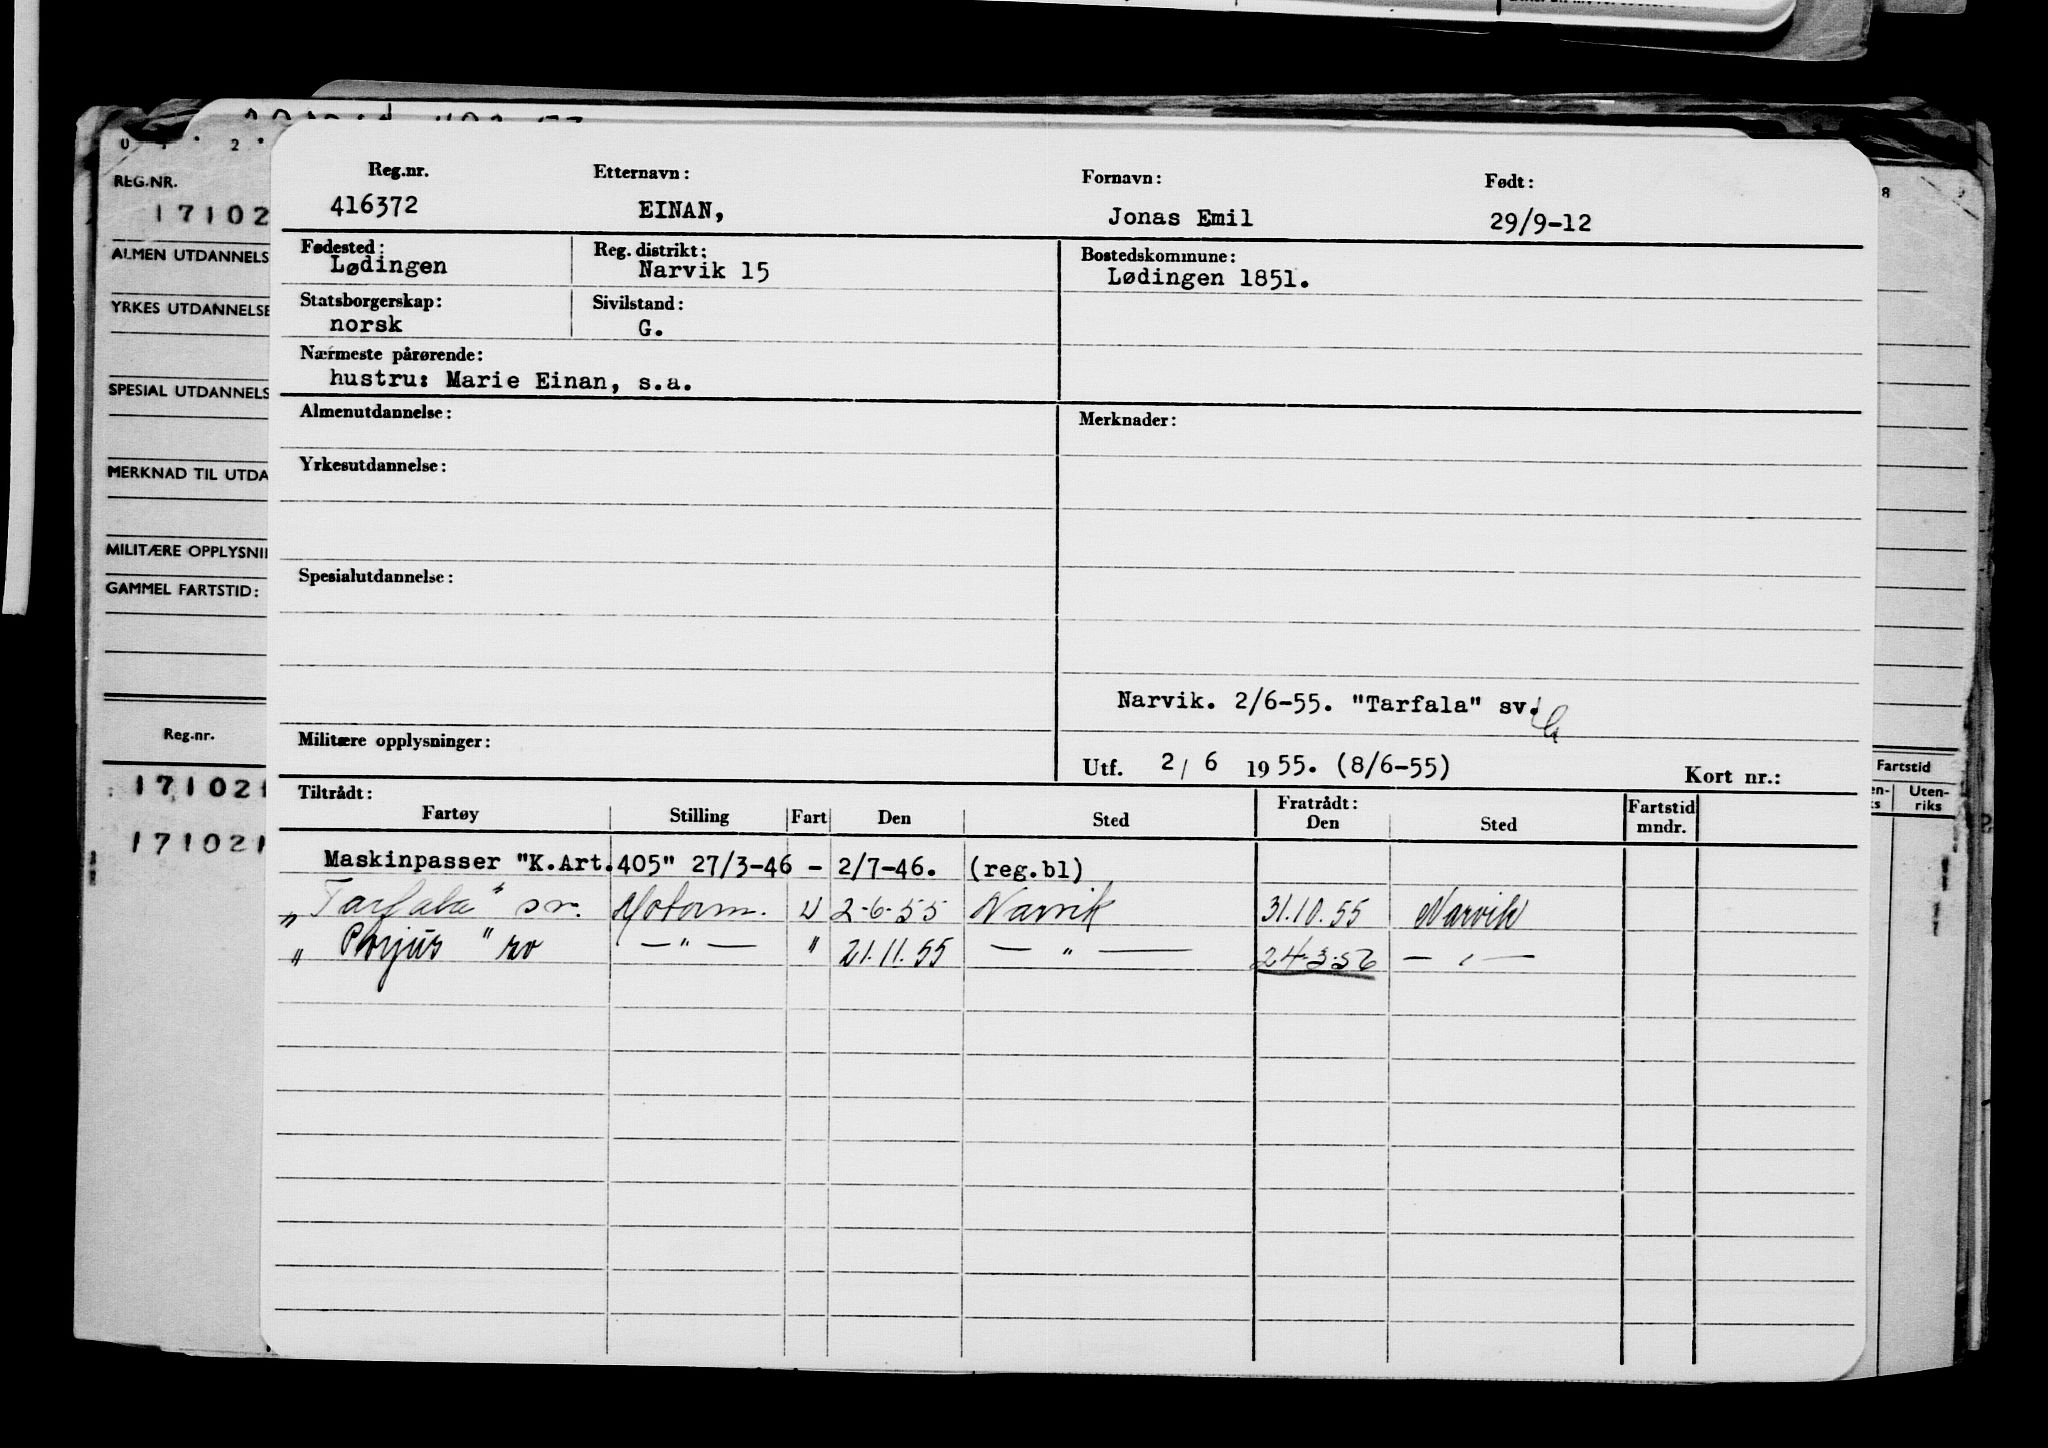 REG.NR.
171021
ALMEN UTDANNELS
YRKES UTDANNELSE
SPESIAL UTDANNELS
MERKNAD TIL UTDA
MILITÆRE OPPLYSNI
GAMMEL FARTSTID:
Reg.nr.
171021
171021
Reg.nr. Etternavn: Fornavn: Født:
416372 EINAN, Jonas Emil 29/9-12
Fødested: Reg. distrikt: Bostedskommune:
Lødingen Narvik 15 Lødingen 1851.
Statsborgerskap: Sivilstand:
norsk G.
Nærmeste pårørende:
hustru: Marie Einan, s.a.
Almenutdannelse: Merknader:
Yrkesutdannelse:
Spesialutdannelse:
Narvik. 2/6-55. "Tarfala" sv.
Militære opplysninger:
Utf. 2/ 6 1955. (8/6-55) Kort nr.:
Tiltrådt: Fratrådt: Fartstid
Fartøy Stilling Fart Den Sted Den Sted mndr.
Maskinpasser "K.Art.405" 27/3-46 - 2/7-46. (reg.bl)
„Tarfala" sv. Motorm. U 2-6-55 Narvik 31.10.55 Narvik
„ Porjus " — " — " 21.11.55 — " — 24-3-56 — " —
Fartstid
Uten-
riks